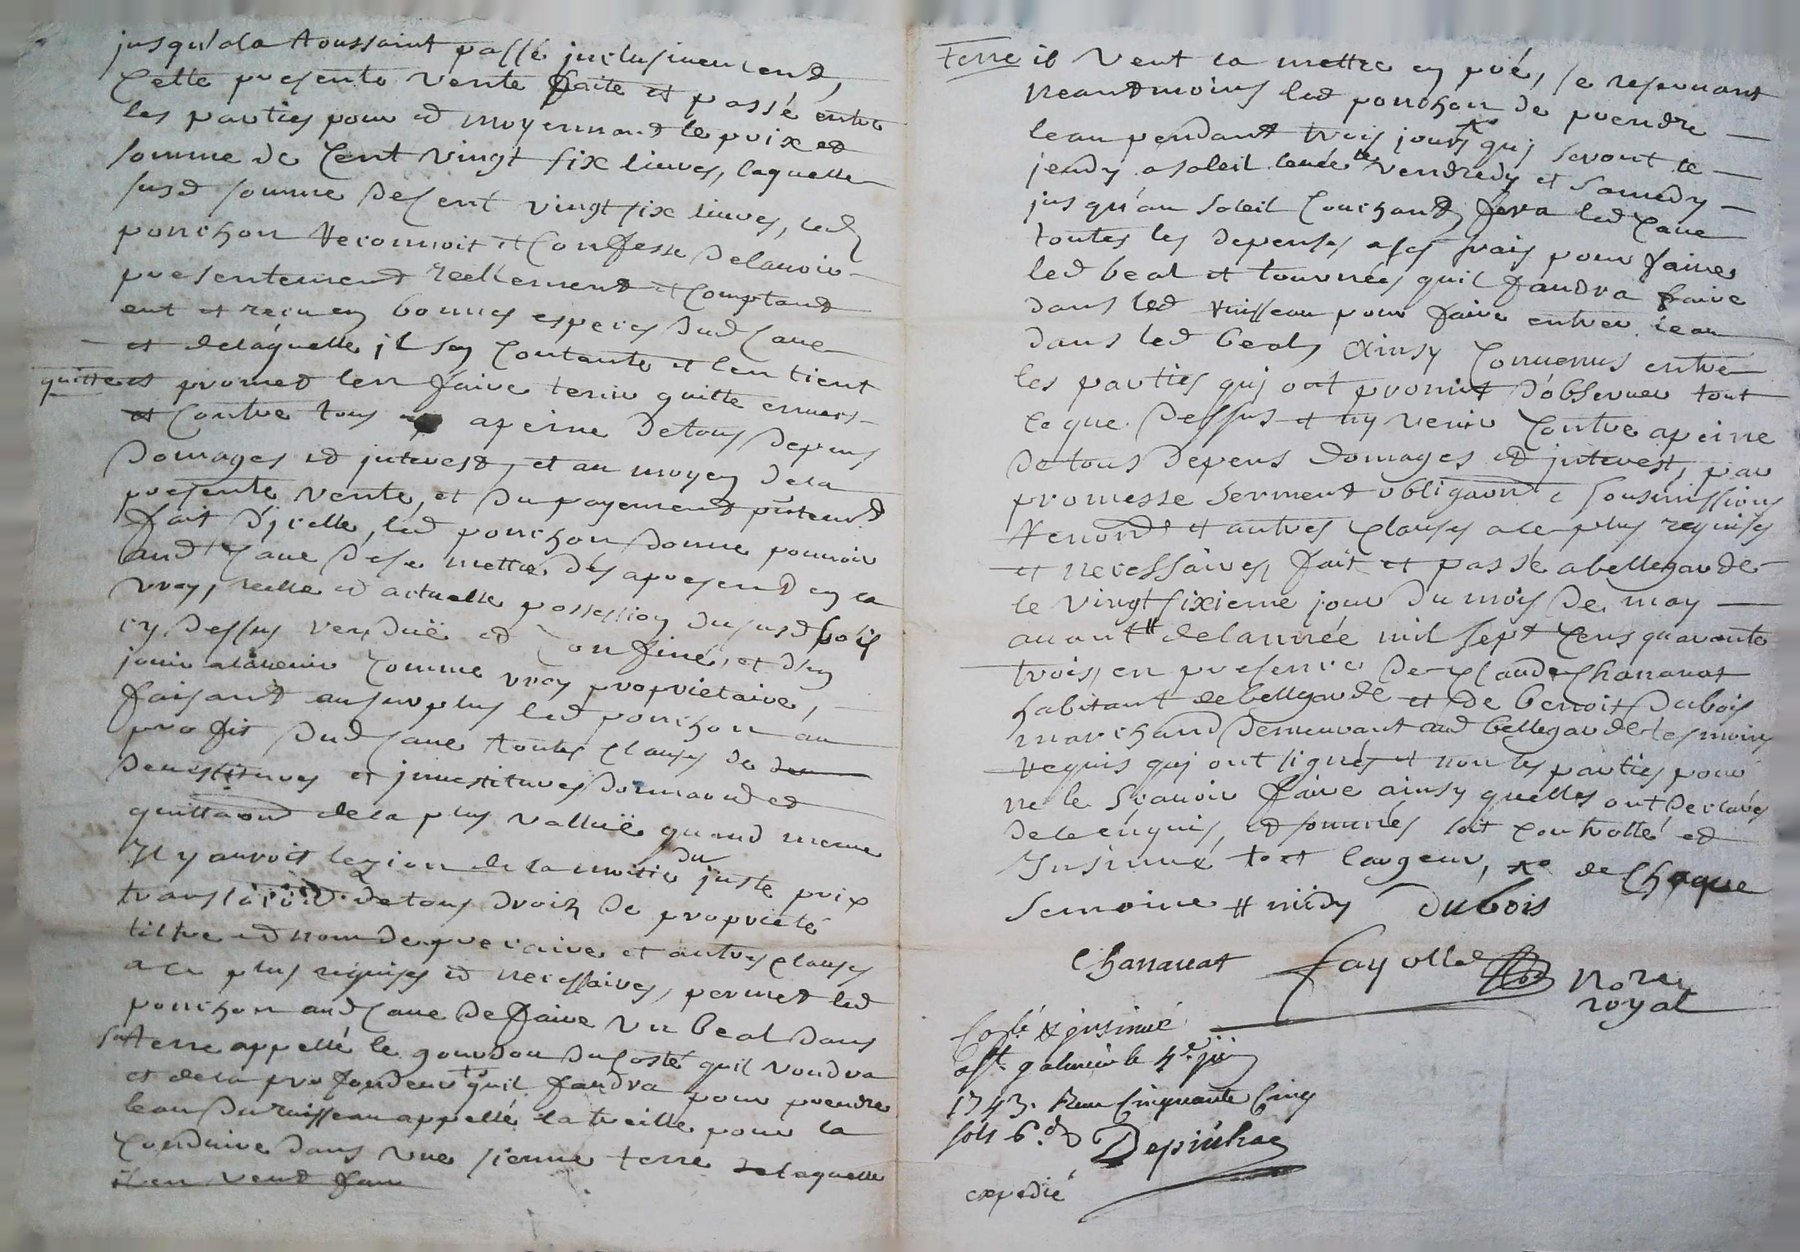 jusqu'ala toussaint passé inclusivement,
Cette presente vente faite et passé entre
les parties pour et moyennant le prix et
somme de Cent vingt six livres, laquelle
susd somme de Cent vingt six livres, led
ponchon reconnoit et Confesse de lavoir
presentement reellement et Comptant
eut et reçu en bonnes especes dud Caue
et de laquelle il sen Contante et len tient
quitte et promet len faire tenir quitte envers
et Contre tous apeine de tous depens
domages et interest, et au moyen de la
presente vente, et du payement
fait d'icelle, led ponchon donne pouvoir
aud Caue de se mettre des apresent en la
vray, reelle et actuelle possession du susd bois
cy dessus venduë et Confiné, et d'en
jouir alavenir Comme vray proprietaire,
faisant ausurplus led ponchon au
profit dud Caue toutes clauses de
devestitures et investitures
quittaond dela plus valluë quand meme
Il y auroit lezion de la moitié du juste prix
de tous droix de proprieté
tiltre et nom de precaire et autres clauses
a ce plus requises et necessaires, permet led
ponchon aud Caue de faire un beal dans
sa terre appellé le gourdou du costé quil voudra
et de la profondeur quil faudra pour prendre
leau du ruisseau appellé la treille pour la
Conduire dans une sienne terre de laquelle
il en veut faire
terre il veut la mettre en pré, se reservant
neantmoins led ponchon de prendre
leau pendant trois jours qui seront le
jeudy a soleil levée vendredy et samedy
jusqu'au soleil Couchand, fera led Caue
toutes les depenses a ses frais pour faire
led beal et tournées quil faudra faire
dans led ruisseau pour faire entrer leau
dans led beal, ainsy Convenus entre
les parties qui ont promit d'observer tout
ce que dessus et ny venir Contre apeine
de tous depens domages et interest, par
promesse serment obligaond soumissions
renond et autres clauses a ce plus requises
et necessaires, fait et passé a bellegarde
le vingt sixieme jour du mois de may
avant # de lannée mil sept Cens quarante
trois, en presence de Claude Chananat
habitant de bellegarde et de benoit dubois
marchand demeurant aud bellegarde temoins
requis qui ont signés et non les parties pour
ne le sçavoir faire ainsy quelles ont declarés
de ce enquis, et sommés soit controllé et
Insinué et largeur, de Chaque
semaine # midy dubois
Chananat fayolle nore
royal
Coslé & insinué
a st galmier le 4e
1743. Reçu Cinquante Cinq
sols 6 d
expedié